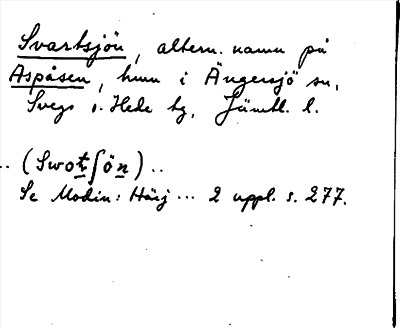 Svartsjön, altern. namn på
Aspåsen, hmn i Ängersjö sn,
Svegs o. Hede tg, Jämtl. l.
.. (Swotʃön) ..
Se Modin: Härj... 2 uppl. s. 277.